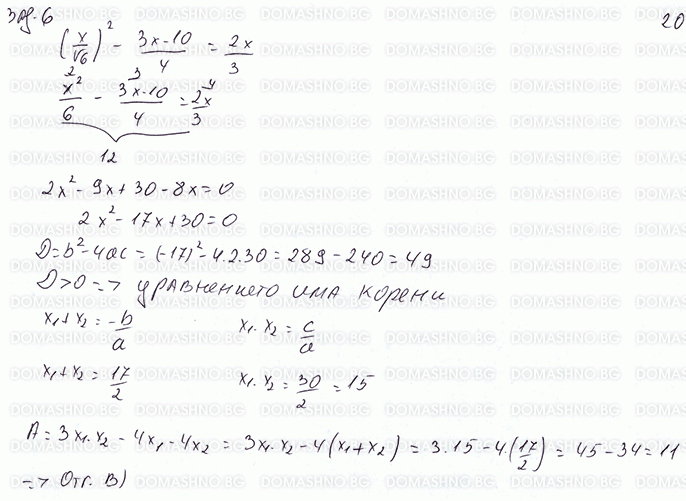 Зад. 6 20
(x/√6)² - (3x-10)/4 = 2x/3
2 3 4
x²/6 - (3x-10)/4 = 2x/3
12
2x² - 9x + 30 - 8x = 0
2x² - 17x + 30 = 0
D = b² - 4ac = (-17)² - 4.2.30 = 289 - 240 = 49
D > 0 => уравнението има корени
x₁ + x₂ = -b/a x₁. x₂ = c/a
x₁ + x₂ = 17/2 x₁. x₂ = 30/2 = 15
A = 3x₁.x₂ - 4x₁ - 4x₂ = 3x₁.x₂ - 4(x₁ + x₂) = 3.15 - 4.(17/2) = 45 - 34 = 11
=> Отг. В)